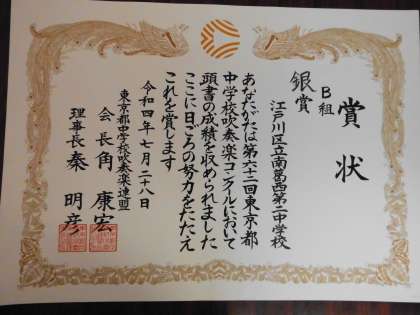 賞状
B組
銀賞
江戸川区立南葛西第二中学校
あなたがたは第六十二回東京都
中学校吹奏楽コンクールにおいて
頭書の成績を収められました
ここに日ごろの努力をたたえ
これを賞します
令和四年七月二十八日
東京都中学校吹奏楽連盟
会長 角 康宏
理事長 秦 明彦